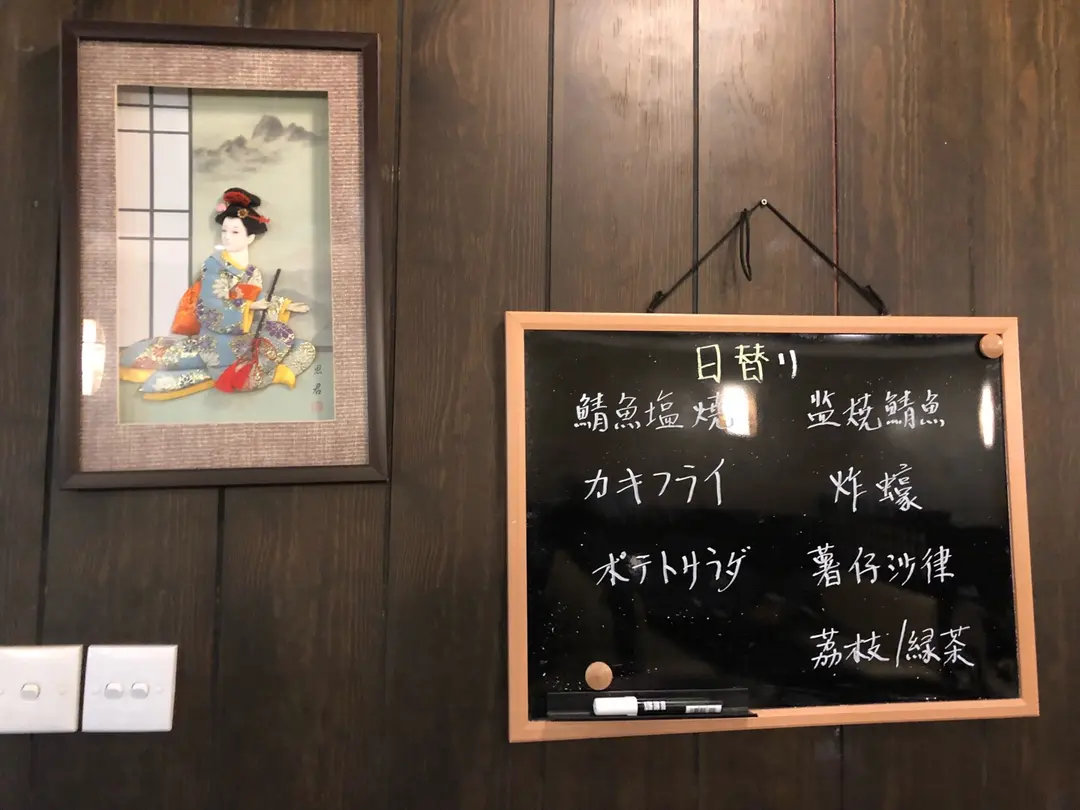 日替り
鯖魚塩燒 监焼鯖魚
カキフライ 炸蠔
ポテトサラダ 薯仔沙律
荔枝/緑茶
思君